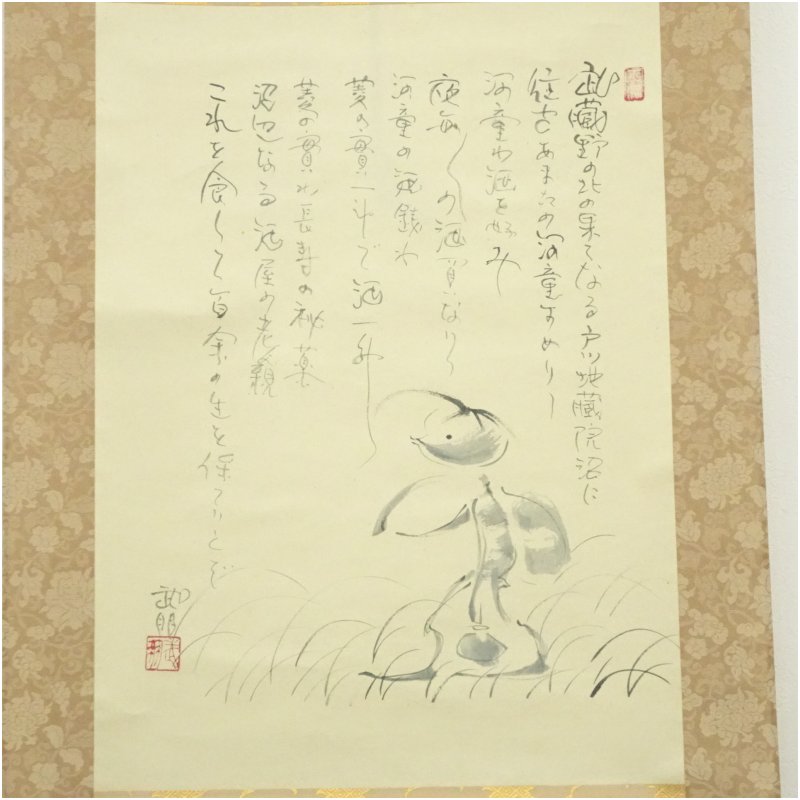 武蔵野の北の果てなる戸ヶ崎地蔵院沼に
往古あまたの河童すめりし
河童わ酒を好み
夜毎〱の酒買いなりし
河童の酒銭わ
菱の實一斗で酒一升
菱の實わ長寿の秘薬
沼辺なる酒屋の老親
これを食しして百余の生を保てりとぞ